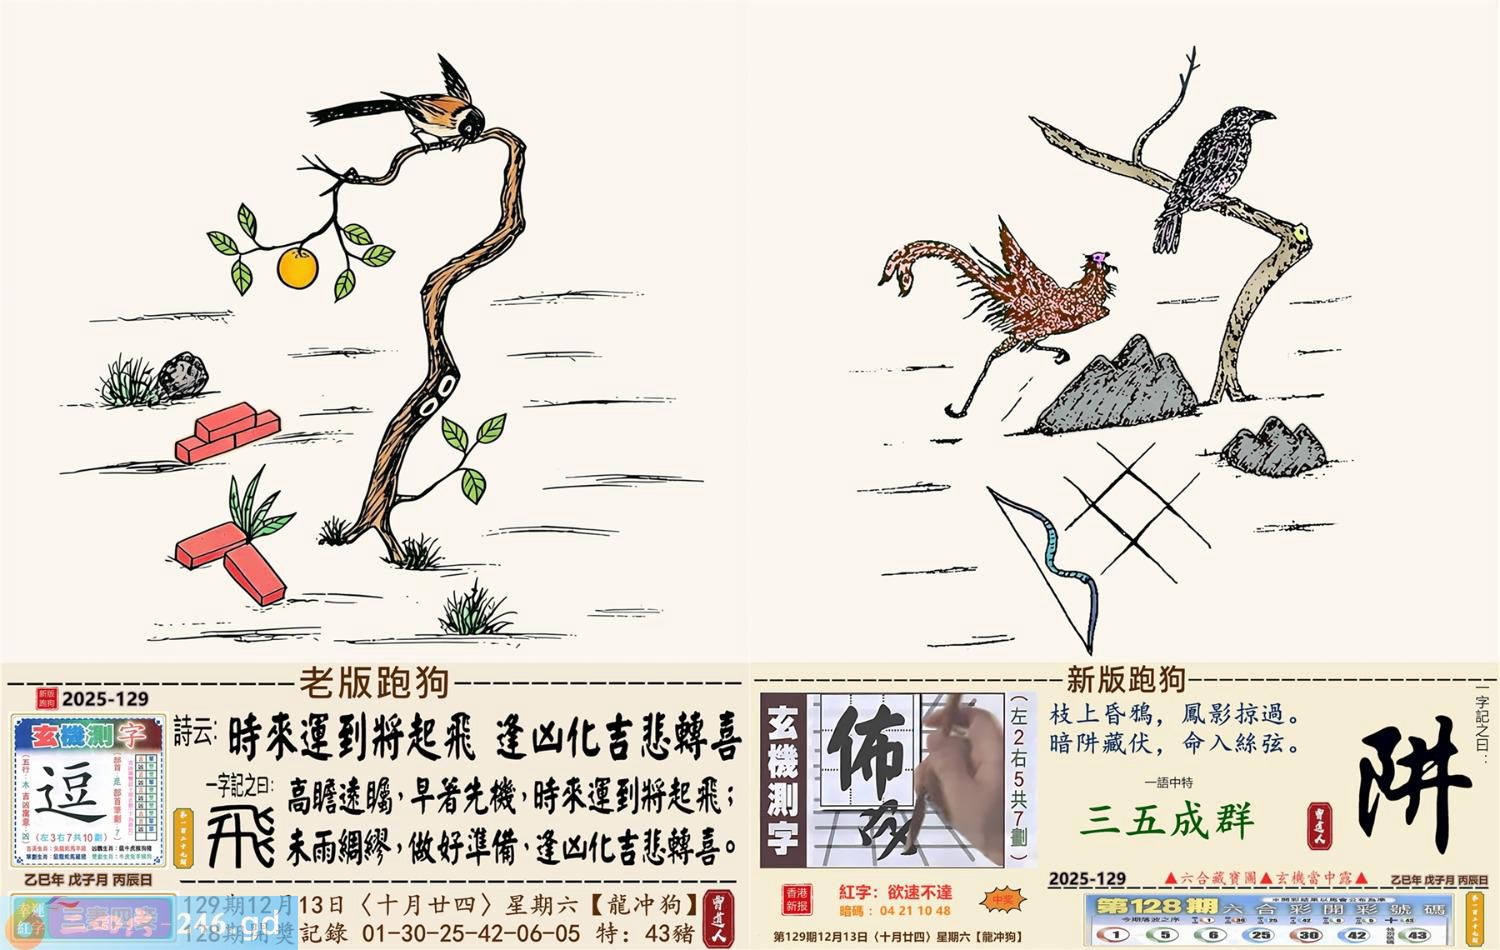 老版跑狗
新版跑狗
2025-129
玄機測字
逗
(左3右7共10劃)
乙巳年 戊子月 丙辰日
詩云: 時來運到將起飛 逢凶化吉悲轉喜
一字記之曰:
飛
高瞻遠矚,早著先機,時來運到將起飛;
未雨綢繆,做好準備,逢凶化吉悲轉喜。
第一百二十九期
129期12月13日〈十月廿四〉星期六【龍冲狗】
128期開獎記錄 01-30-25-42-06-05 特: 43豬
曾道人
246.gd
新版跑狗
玄機測字
佈
(左2右5共7劃)
枝上昏鴉, 鳳影掠過。
暗阱藏伏, 命入絲弦。
一語中特
三五成群
曾道人
一字記之曰:
阱
香港新报
紅字: 欲速不達
暗碼: 04 21 10 48
中奖
第129期12月13日〈十月廿四〉星期六【龍冲狗】
2025-129
▲六合藏寶圖▲玄機當中露▲
乙巳年 戊子月 丙辰日
第128期 六合彩開彩號碼
今期落波之序
1 5 6 25 30 42 特別號碼 43